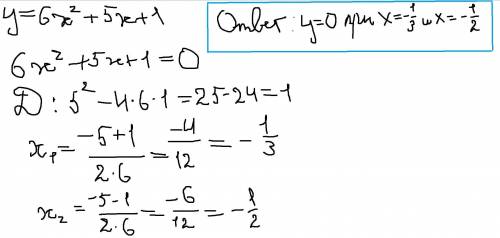 y=6x²+5x+1
Ответ: y=0 при x=-1/3 и x=-1/2
6x²+5x+1=0
D: 5²-4·6·1=25-24=1
x₁=(-5+1)/(2·6)=-4/12=-1/3
x₂=(-5-1)/(2·6)=-6/12=-1/2